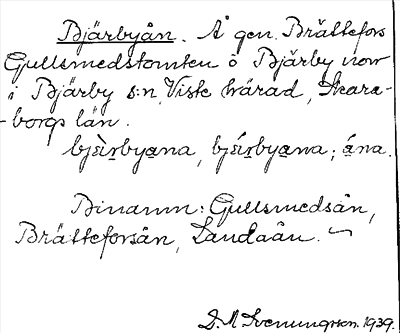 Bjärbyån. Å gen. Brättefors
Gullsmedstomten o Bjärby norr
i Bjärby s:n, Viste härad, Skara-
-borgs län.
bjä̀rbyana, bjä́rbyana; ána.
Binamn: Gullsmedsån,
BräTteforsån, Landaån.
D. A. Svenungsson. 1939.